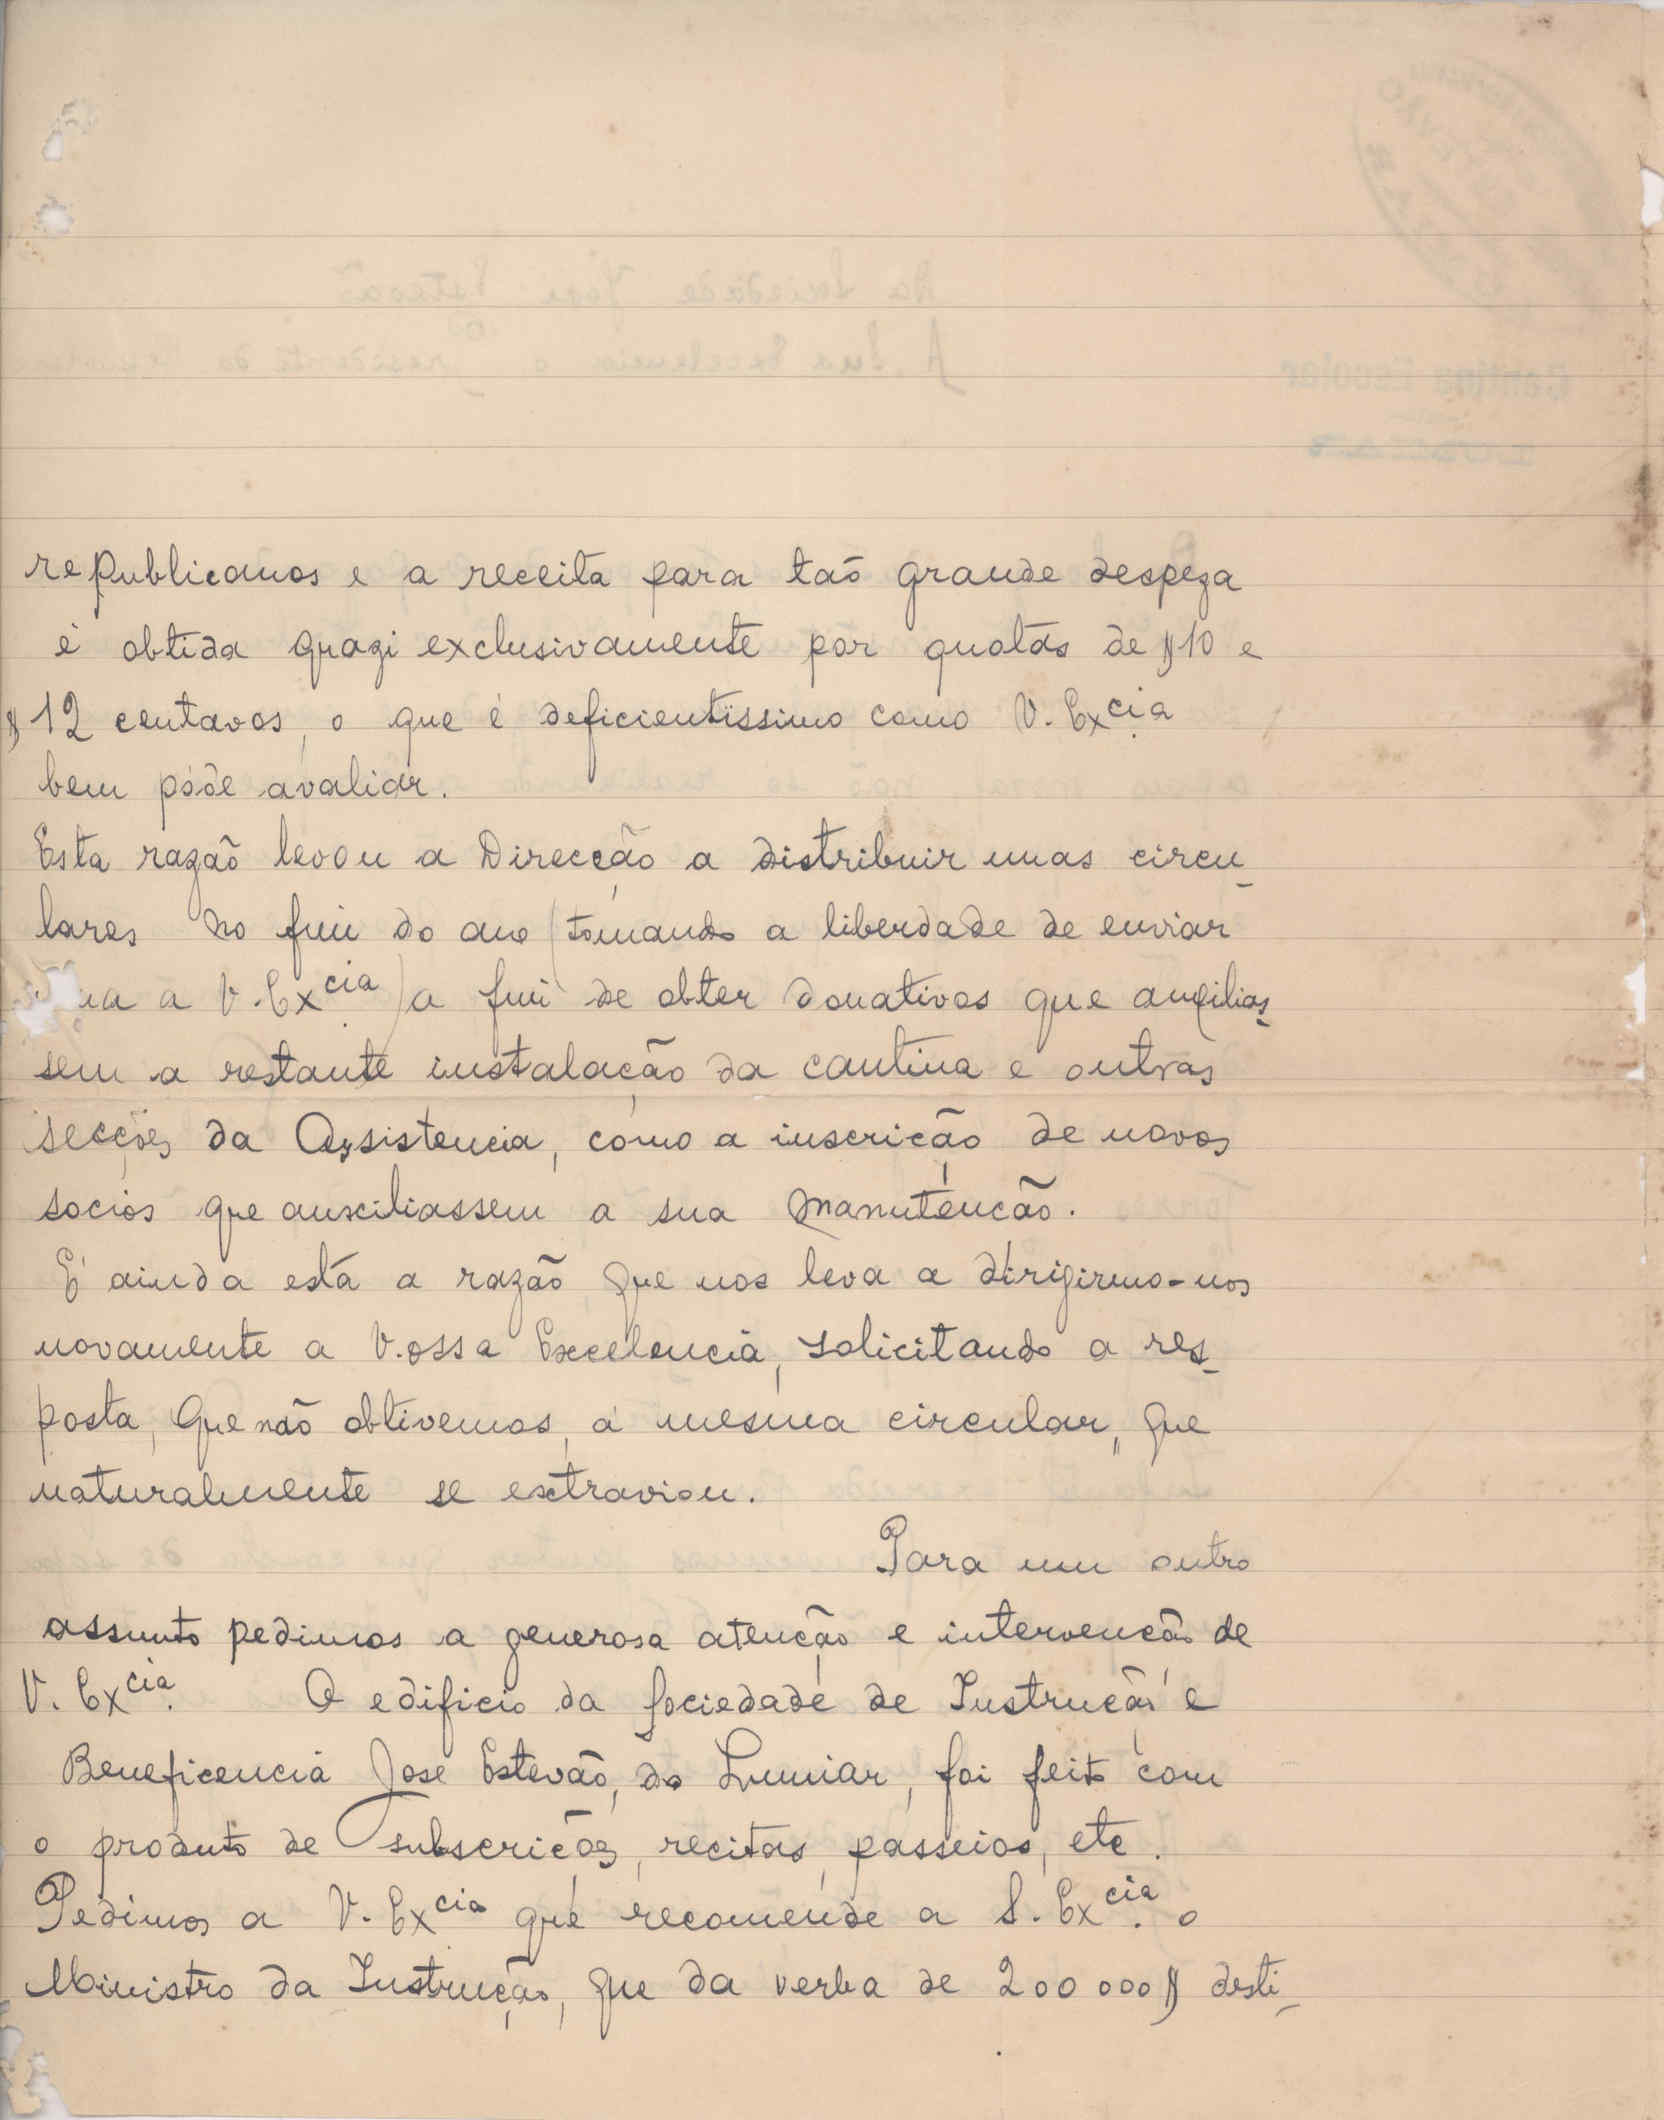 republicanos e a receita para taõ grande despeza
é obtida quazi exclusivamente por quotas de $10 e
$12 centavos, o que é deficientissimo como V. Excia
bem póde avaliar.
Esta razaõ levou a Direcção a distribuir umas circu-
lares no fim do ano (tomando a liberdade de enviar
uma a V. Excia.) a fim de obter donativos que auxilias-
sem a restante instalação da cantina e outras
secções da Assistencia, como a inscrição de novos
socios que auxiliassem a sua manutenção.
E' ainda esta a razão que nos leva a dirigirmo-nos
novamente a Vossa Excelencia, solicitando a res-
posta, que não obtivemos, á mesma circular, que
naturalmente se extraviou.
Para um outro
assunto pedimos a generosa atenção e intervenção de
V. Excia. O edificio da Sociedade de Instrução e
Beneficencia José Estevão, do Lumiar, foi feito com
o produto de subscrições, recitas, passeios, etc.
Pedimos a V. Excia que recomende a S. Excia. o
Ministro da Instrução, que da verba de 200000$ desti-